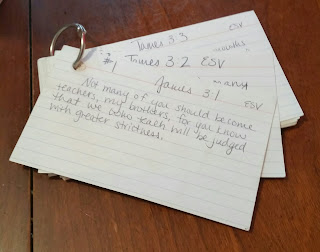 James 3:3
#1 James 3:2 ESV
James 3:1
ESV
Not many of you should become
teachers, my brothers, for you know
that we who teach will be judged
with greater strictness.